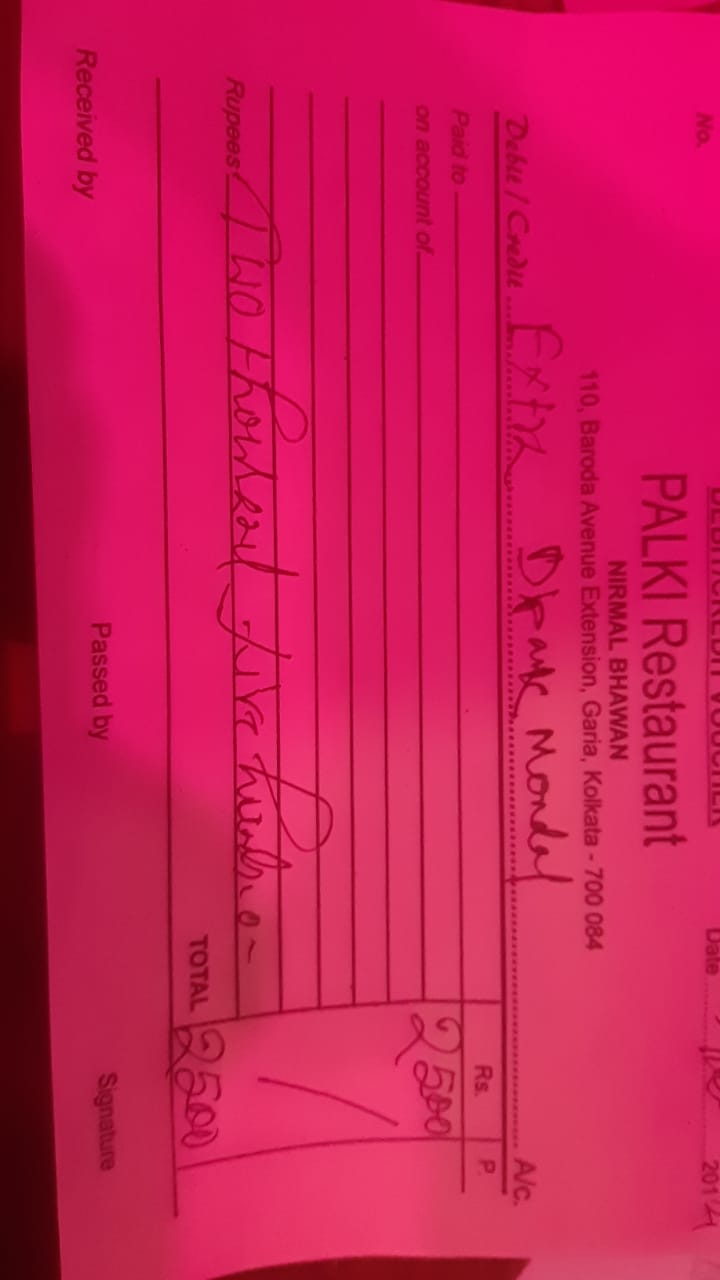 DEBIT/CREDIT VOUCHER
No. Date
PALKI Restaurant
NIRMAL BHAWAN
110, Baroda Avenue Extension, Garia, Kolkata - 700 084
Debit / Credit Extra Dipak Mondal A/c.
Rs. P.
Paid to 2500
on account of
Rupees Two thousand five hundred
TOTAL 2500
Received by Passed by Signature